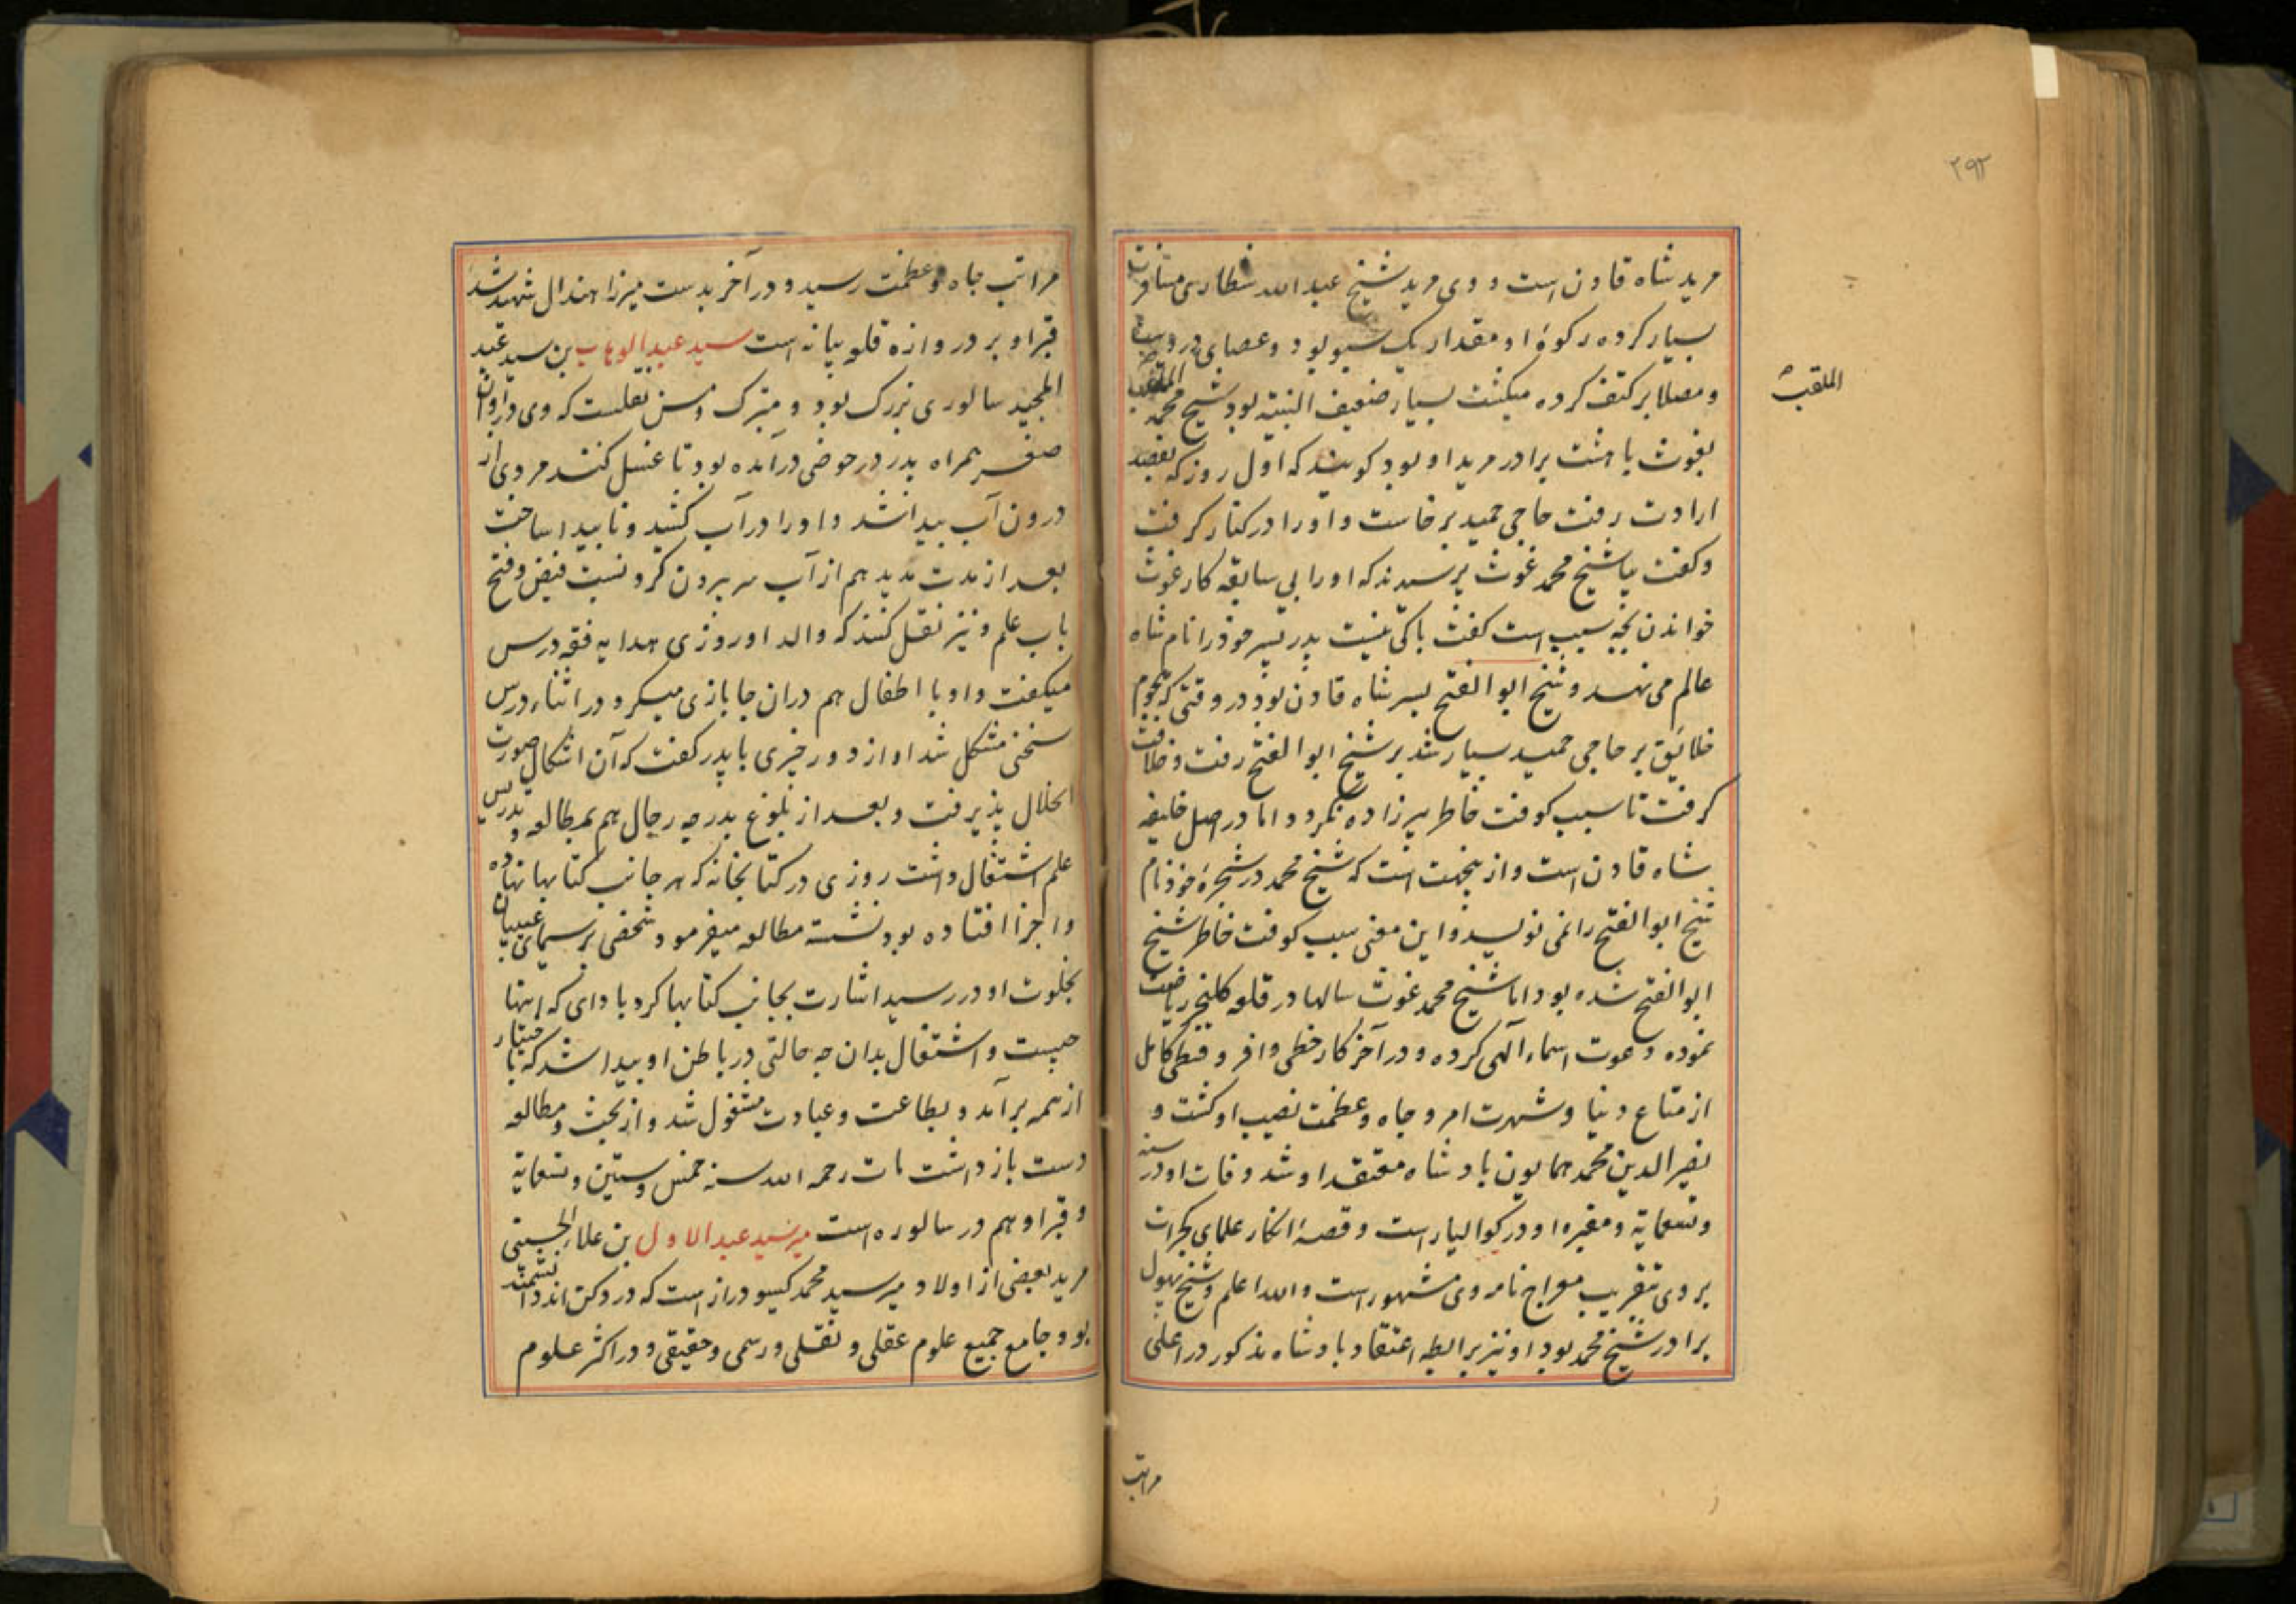 ۲۹۲
مرید شاه قاذن است و وی مرید شیخ عبد الله شطاری مسافرت
بسیار کرده رکوهٔ او مقدار یک سبو بود و عصای در دست
ومصلا بر کتف کرده میکشت بسیار ضعیف البنیته بود شیخ محمد الملقب
الملقب
بغوث با هشت برادر مرید او بود کویند که اول روز که بقصد
ارادت رفت حاجی حمید برخاست و او را در کنار کرفت
وکفت بیا شیخ محمد غوث پرسیدند که او را بی سابقه کار غوث
خواندن بچه سبب است کفت باکی نیست پدر پسر خود را نام شاه
عالم می نهد و شیخ ابو الفتح پسر شاه قاذن بود در وقتی که هجوم
خلایق بر حاجی حمید بسیار شد بر شیخ ابو الفتح رفت و خلافت
کرفت تا سبب کوفت خاطر پیرزاده نکردد اما در اصل خلیفه
شاه قاذن است و ازینجهت است که شیخ محمد در شجرهٔ خود نام
شیخ ابو الفتح را نمی نویسد و این معنی سبب کوفت خاطر شیخ
ابو الفتح شده بود اما شیخ محمد غوث سالها در قلعه کلنجر ریاضت
نموده دعوت اسماء الهی کرده و در آخر کار حظی وافر و قسطی کامل
از متاع دنیا و شهرت امر و جاه و عظمت نصیب او کشت و
نصیر الدین محمد همایون بادشاه معتقد او شد وفات او در سنه
وتسعمایة و مقبره او در کوالیار است و قصهٔ انکار علمای کجرات
بر وی بتقریب معراج نامه وی مشهور است و الله اعلم و شیخ بهول
برادر شیخ محمد بود او نیز برابطه اعتقاد بادشاه مذکور در اعلی
مراتب
مراتب جاه و عظمت رسید و در آخر بدست میرزا هندال شهید شد
قبر او بر دروازهٔ قلعه بیانه است سید عبد الوهاب بن سید عبد
المجید سالوری بزرک بود و متبرک و مسن نقلست که وی در اوان
صغر همراه پدر در حوضی درآمده بود تا غسل کنند مردی از
درون آب پیدا شد و او را در آب کشید و ناپیدا ساخت
بعد از مدت مدید هم از آب سر بیرون کرد نسبت فیض و فتح
باب علم و نیز نقل کنند که والد او روزی هدایه فقه درس
میکفت و او با اطفال هم دران جا بازی میکرد در اثناء درس
سخنی مشکل شد او از دور خبری با پدر کفت که آن اشکال صورت
انحلال پذیرفت و بعد از بلوغ بدرجه رجال هم بمطالعه و تدریس
علم اشتغال داشت روزی در کتابخانه که هر جانب کتابها نهاده
واجزا افتاده بود نشسته مطالعه میفرمود شخصی بر سیمای غیبیان
بخلوت او در رسید اشارت بجانب کتابها کرد با دای که اینها
چیست و اشتغال بدان چه حالتی در باطن او پیدا شد که بی اختیار
از همه برآمد و بطاعت و عبادت مشغول شد و از بحث و مطالعه
دست باز داشت مات رحمه الله سنه خمس و ستین و تسعمایة
و قبر او هم در سالوره است میر سید عبد الاول بن علاء الحسینی
مرید بعضی از اولاد میر سید محمد کیسو دراز است که در دکن اند دانشمند
بود جامع جمیع علوم عقلی و نقلی و رسمی و حقیقی و در اکثر علوم